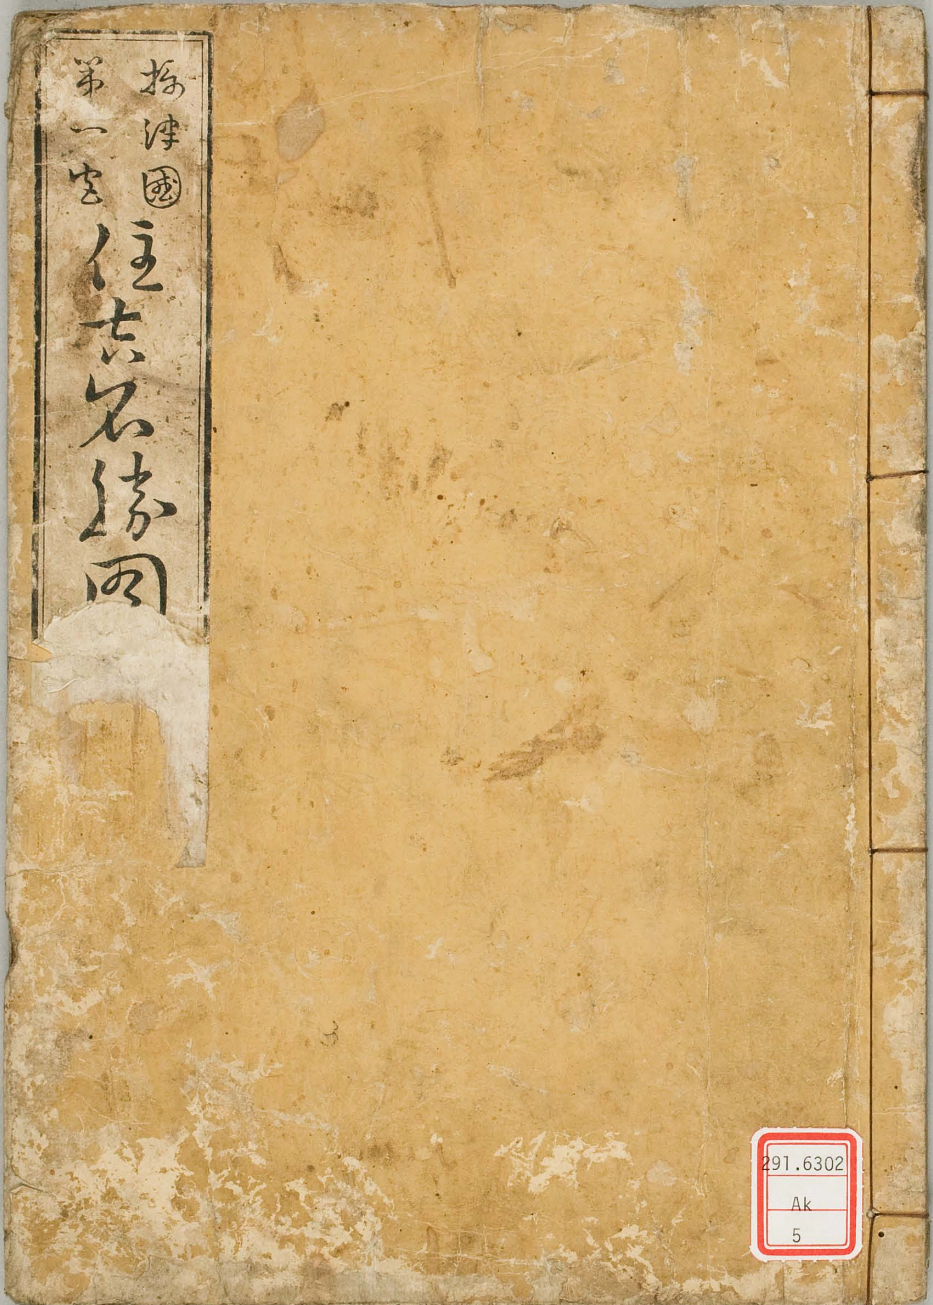 摂津國
第一宮
住吉名勝図
291.6302
Ak
5